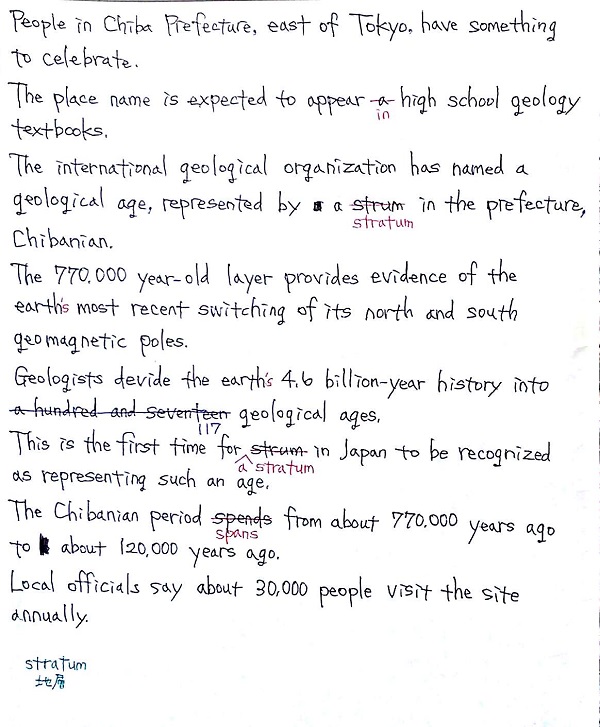 People in Chiba Prefecture, east of Tokyo, have something
to celebrate.
The place name is expected to appear a in high school geology
textbooks.
The international geological organization has named a
geological age, represented by a strum stratum in the prefecture,
Chibanian.
The 770,000 year-old layer provides evidence of the
earth's most recent switching of its north and south
geomagnetic poles.
Geologists devide the earth's 4.6 billion-year history into
a hundred and seventeen 117 geological ages.
This is the first time for strum a stratum in Japan to be recognized
as representing such an age.
The Chibanian period spends spans from about 770,000 years ago
to about 120,000 years ago.
Local officials say about 30,000 people visit the site
annually.
stratum
地層